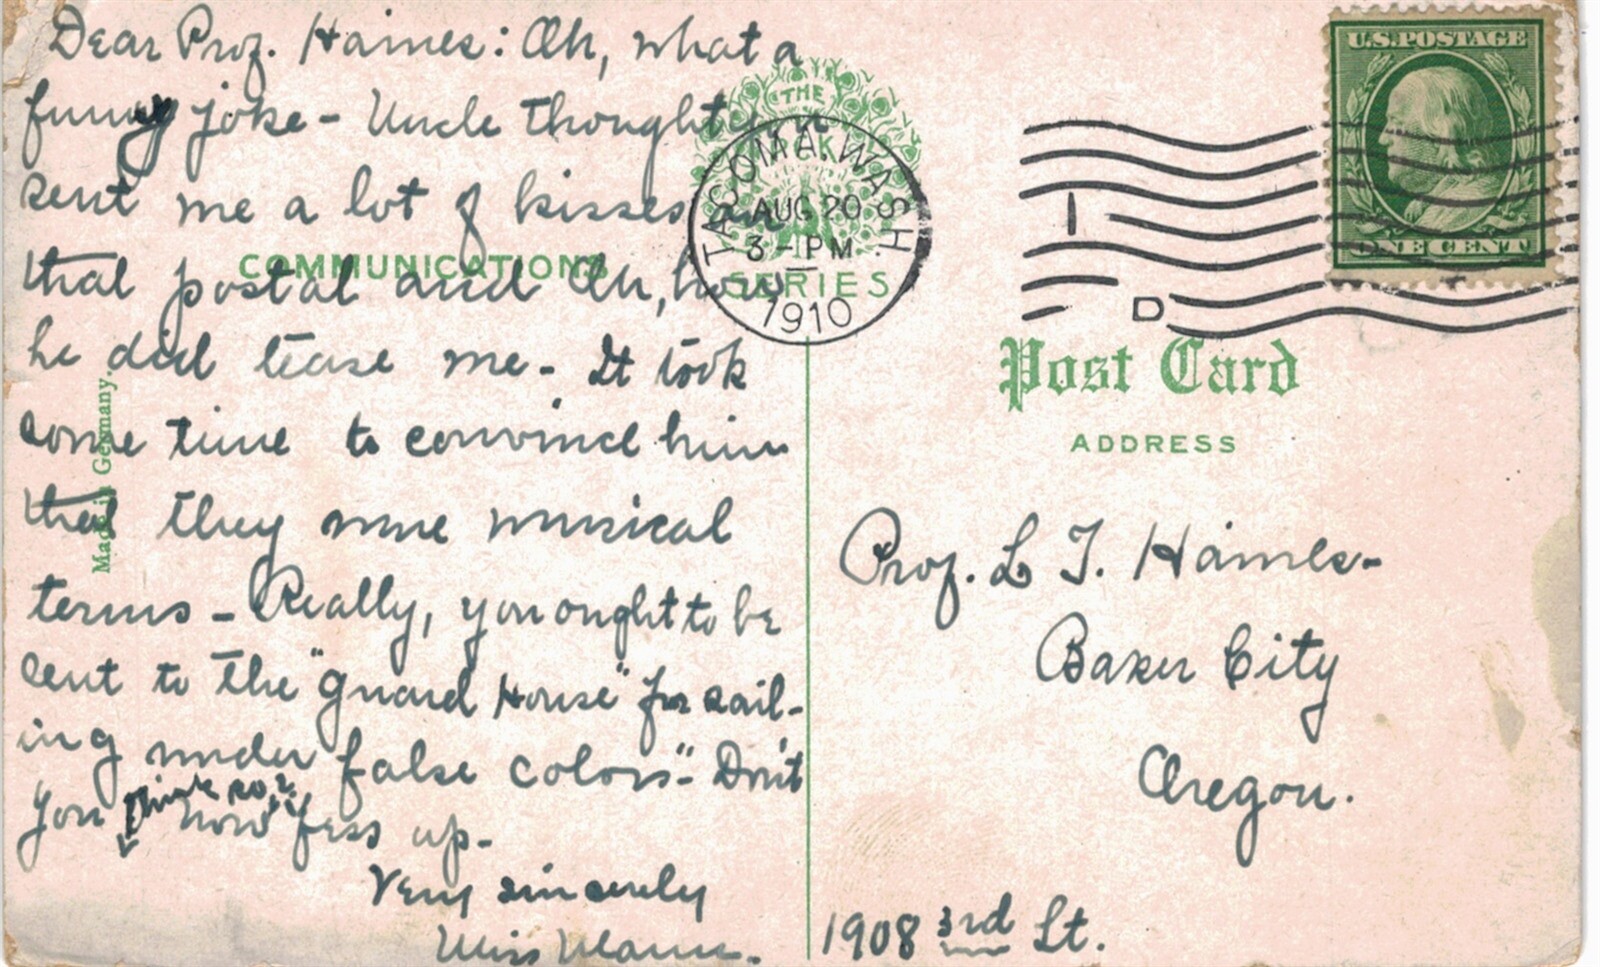 Dear Prof. Haines: Oh, what a
funny joke - Uncle thought you
sent me a lot of kisses on
that postal and Oh, how
he did tease me - It took
some time to convince him
that they were musical
terms - Really, you ought to be
sent to the "Guard House" for sail-
ing under false colors" - Don't
you think so? now "fess up -
Very sincerely
Miss Mann.
COMMUNICATIONS
Made in Germany.
THE
SERIES
TACOMA, WASH
AUG 20
3 - PM
1910
1
D
U.S. POSTAGE
ONE CENT
Post Card
ADDRESS
Prof. L T. Haines -
Baker City
Oregon.
1908 3rd St.